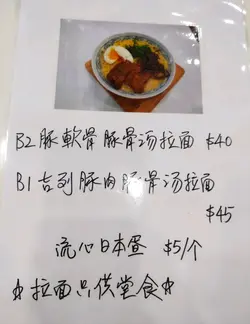 B2 豚軟骨豚骨汤拉面 $40
B1 吉列豚肉豚骨汤拉面
$45
流心日本蛋 $5/个
☆ 拉面只供堂食☆